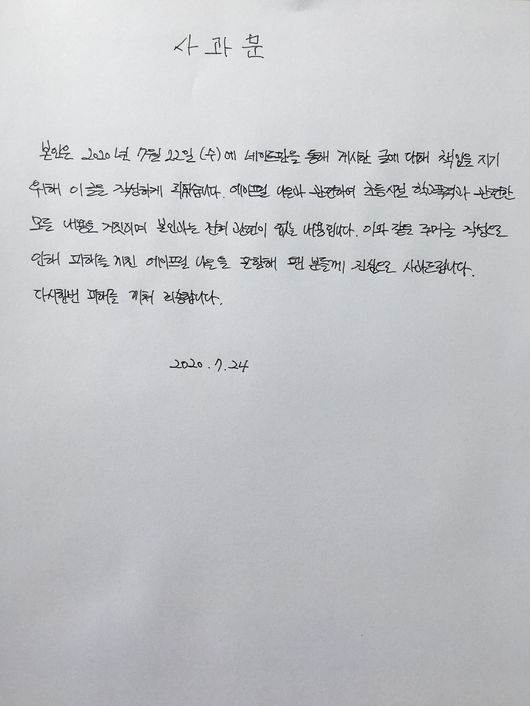 사과문
본인은 2020년 7월 22일 (수)에 네이트판을 통해 게시한 글에 대해 책임을 지기
위해 이 글을 작성하게 되었습니다. 에이프릴 나은과 관련하여 초등시절 학교폭력과 관련한
모든 내용은 거짓이며 본인과는 전혀 관련이 없는 내용입니다. 이와 같은 루머글 작성으로
인해 피해를 끼친 에이프릴 나은을 포함해 팬 분들께 진심으로 사과드립니다.
다시한번 피해를 끼쳐 죄송합니다.
2020. 7. 24